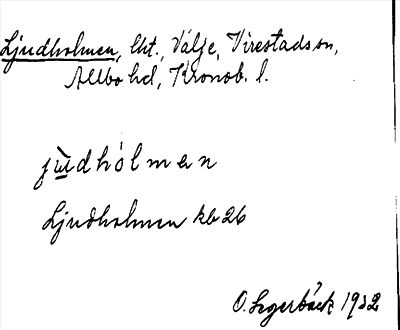 Ljudholmen, lht., Välje, Virestads sn,
Allbo hd, Kronob. l.
jùdhólmen
Ljudholmen kb 26
O. Segerbäck 1932